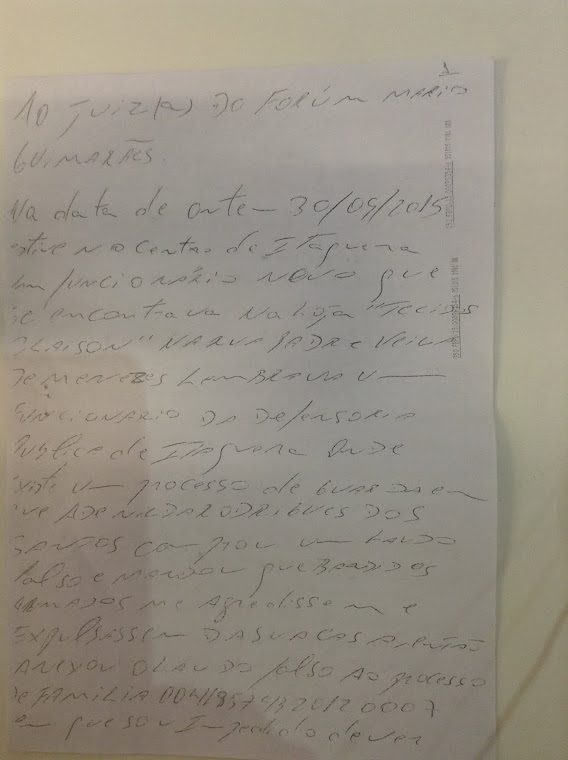 1
AO JUIZ(A) DO FORÚM MARIO
GUIMARÃES.
Na data de ontem 30/09/2015
estive no centro de ITAQUERA
um funcionário novo que
se encontrava na loja "TECIDOS
" NA RUA PADRE VEIGA
DE MENEZES LEMBRAVA UM
FUNCIONARIO DA DEFENSORIA
Publica de ITAQUERA ONDE
existe um processo de GUARDA em
que ADENILDA RODRIGUES DOS
SANTOS comprou um LAUDO
falso e MANDOU que BANDIDOS
ARMADOS me Agredissem e
EXPULSASSEM DA SUA CASA e então
ANEXOU O LAUDO falso AO processo
de FAMILIA
em que sou Impedido de ver